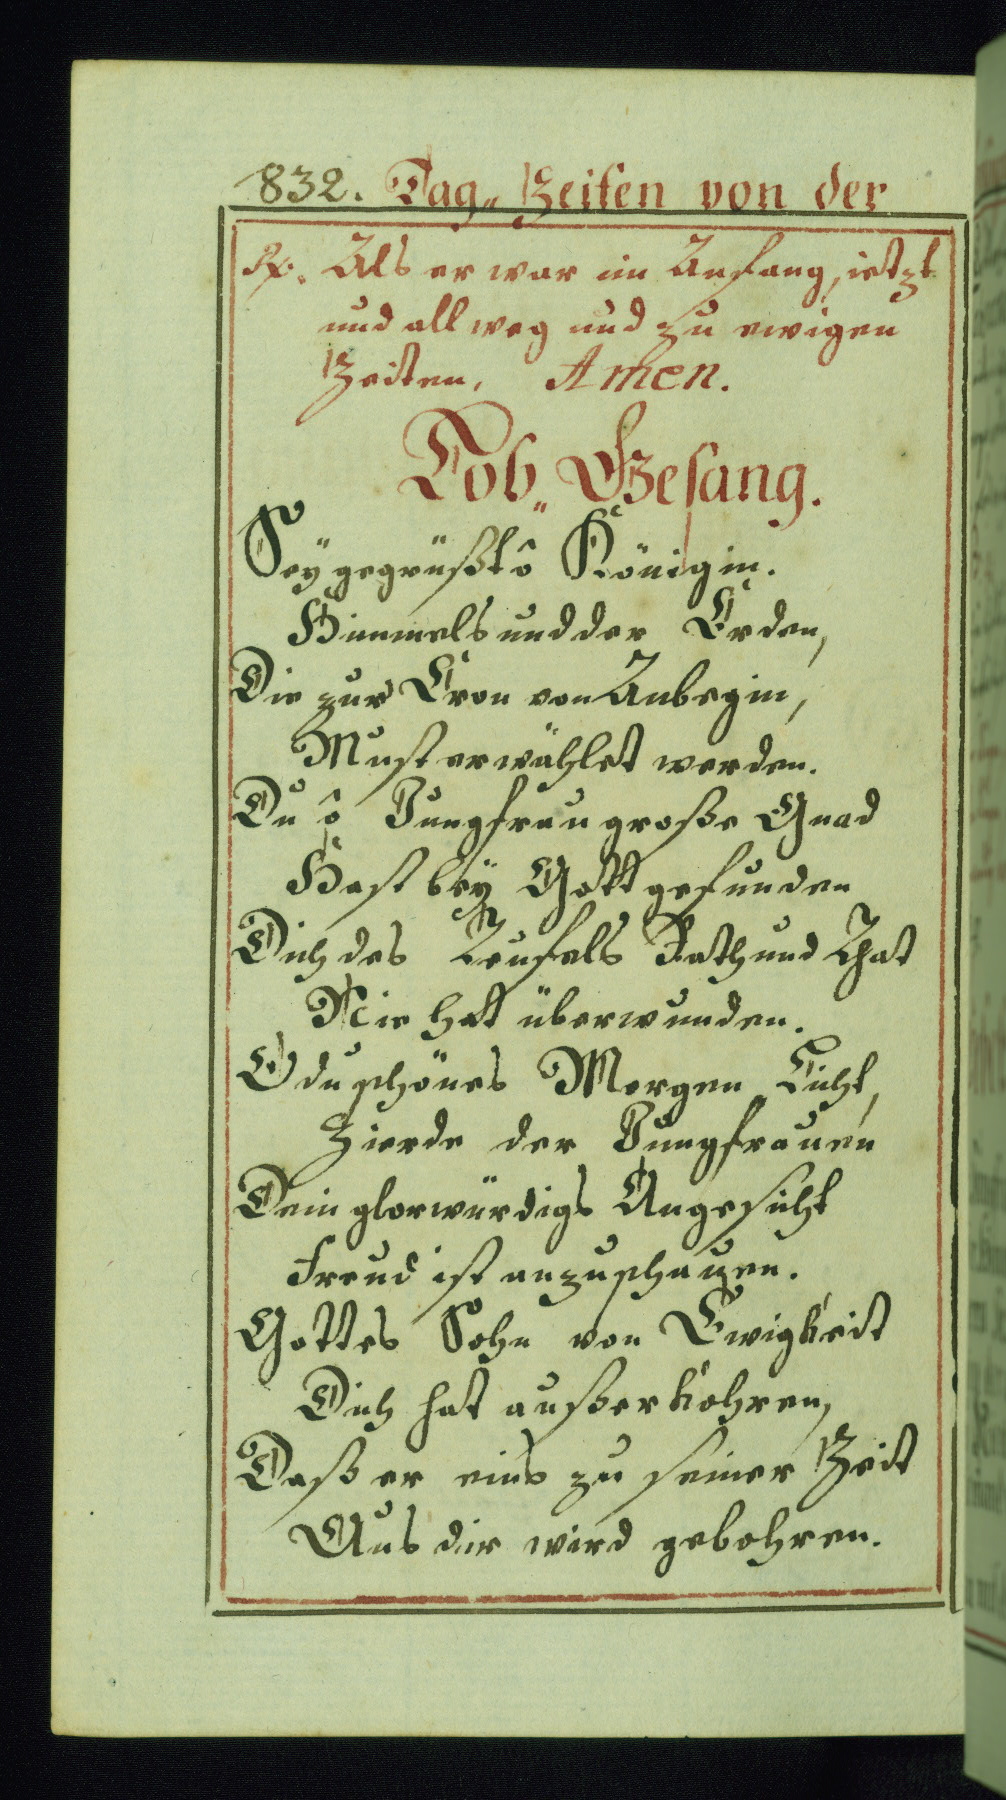 832. Tag„ Zeiten von der
R. Als er war im Anfang, ietzt
und all weg und zu ewigen
Zeiten, Amen.
Lob„ Gesang.
Seÿ gegrüßt ô Königin.
Himmels und der Erden,
Die zur Cron von Anbegin,
Must erwählet werden.
Du ô Jungfrau große Gnad
Hast beÿ Gott gefunden
Dich des Teufels Rath und That
Nie hatt überwunden.
O du schönes Morgen„ Licht,
Zierde der Jungfrauen
Dein glorwürdigs Angesicht
Freud ist anzuschauen.
Gottes Sohn von Ewigkeit
Dich hat außerkohren,
Daß er eins zu seiner Zeit
Aus dir wird gebohren.